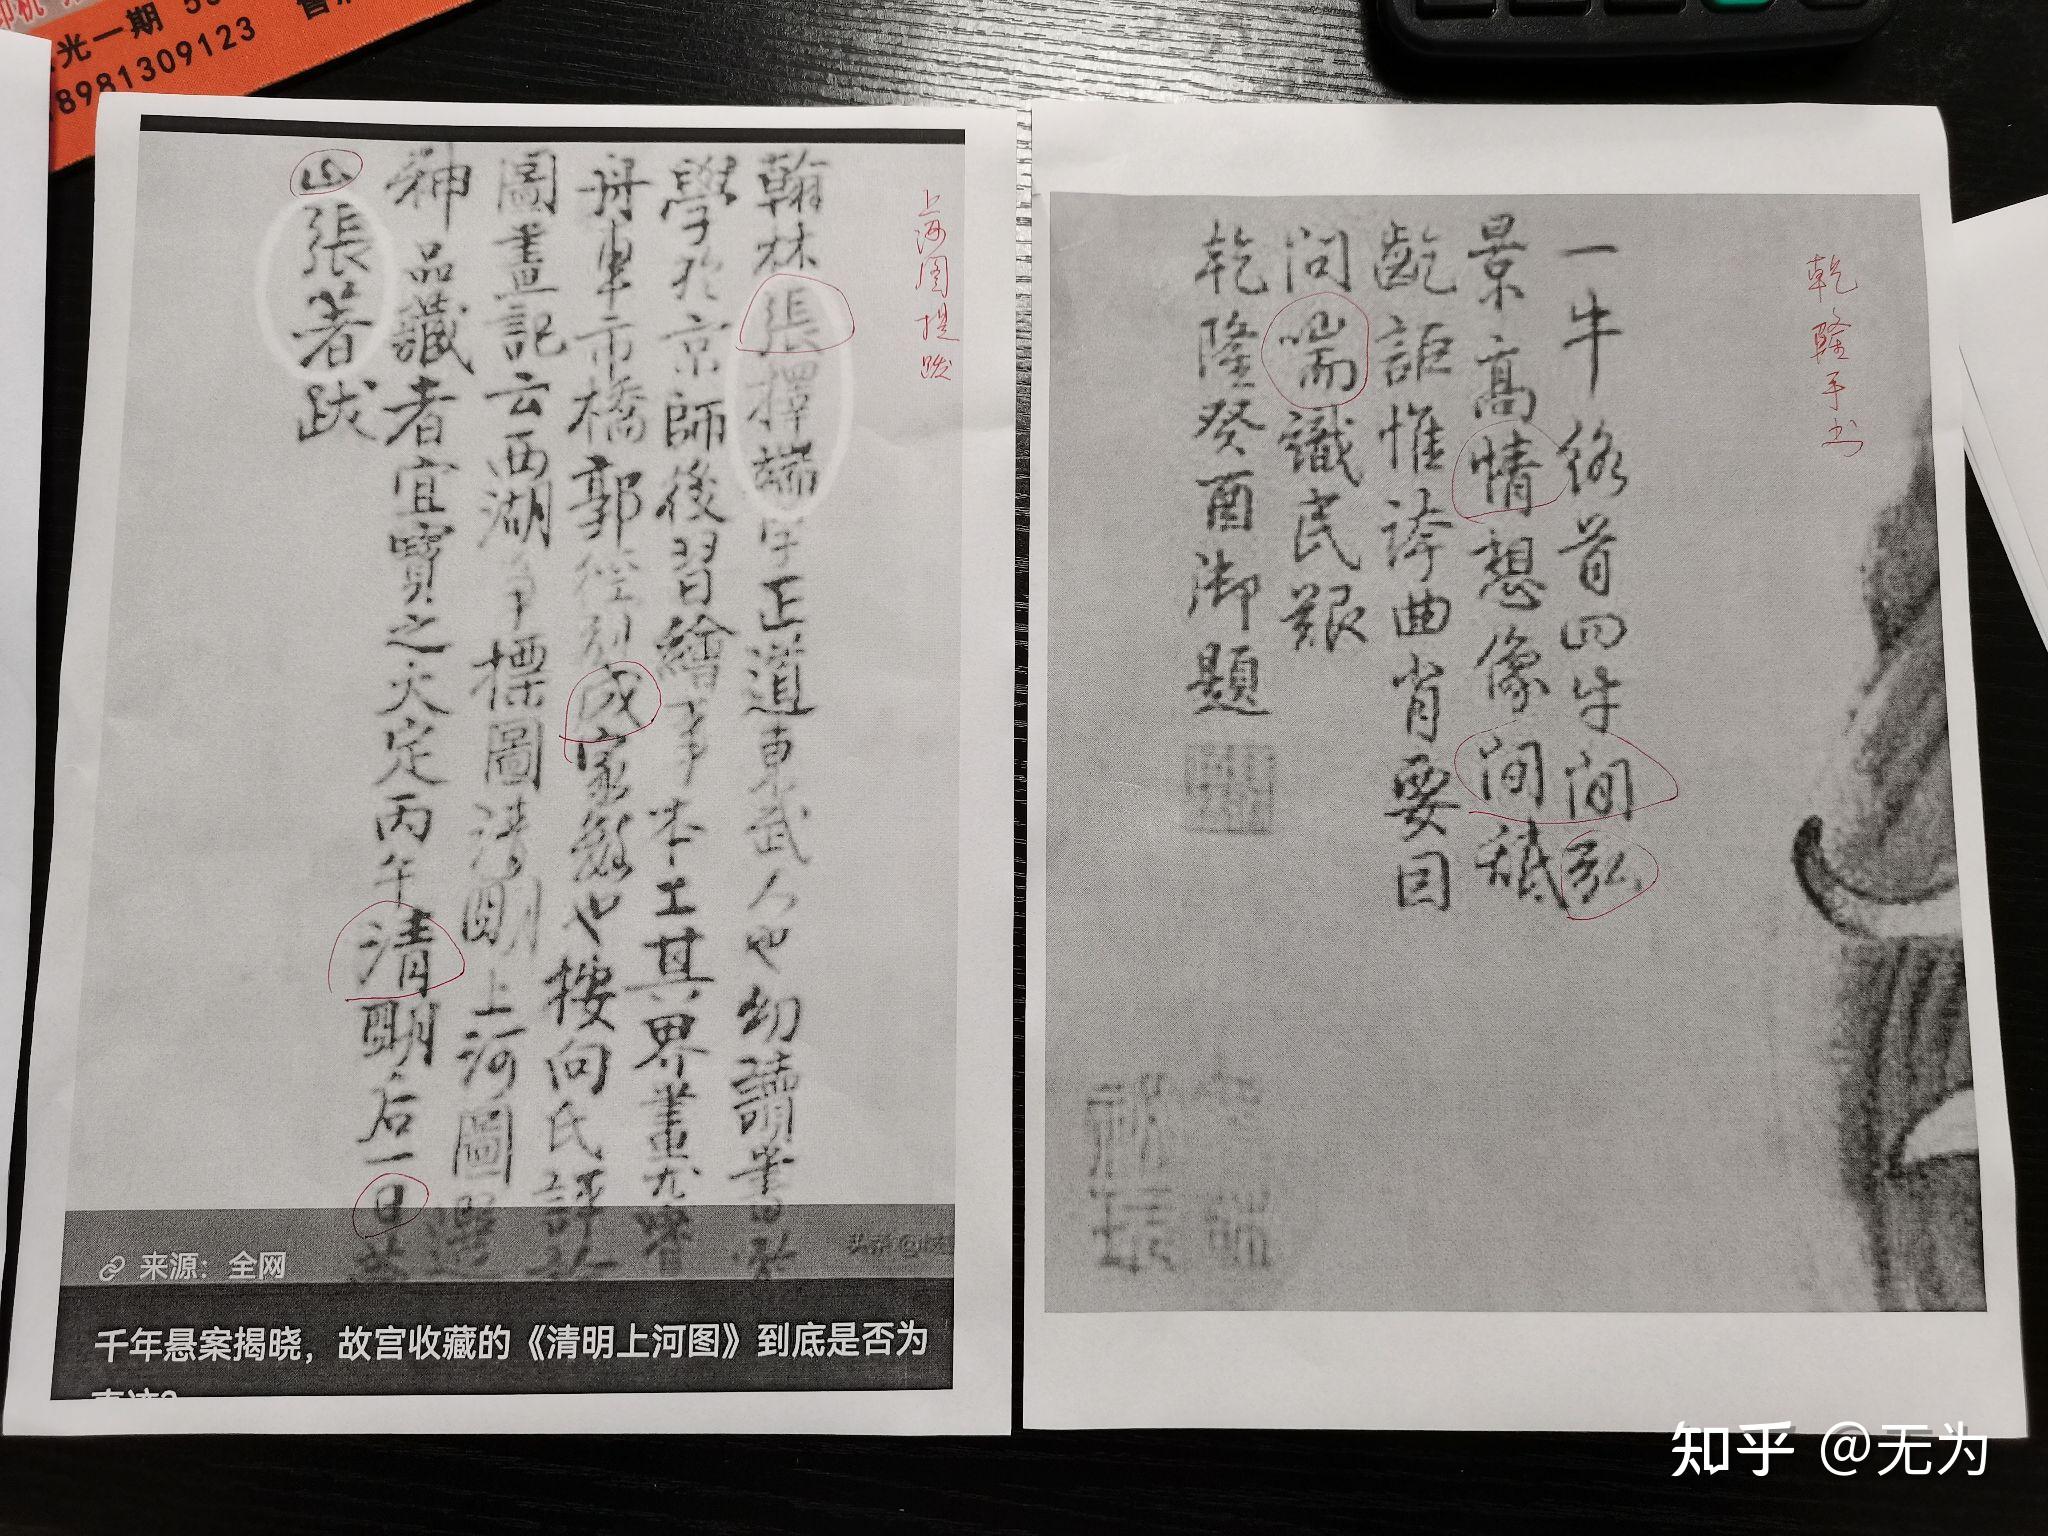 光一期 55
18981309123
上河图提跋
翰林張擇端字正道東武人也幼讀書游
學於京師後習繪事本工其界畫尤嗜
舟車市橋郭徑别成家數也按向氏評論
圖畫記云西湖爭標圖清明上河圖選
神品藏者宜寶之大定丙午清明后一日燕
山張著跋
来源：全网
千年悬案揭晓，故宫收藏的《清明上河图》到底是否为
乾隆手书
一牛络首四牛间弘
景高情想像间甝
齕詎惟誇曲肖要因
问喘識民艱
乾隆癸酉御題
知乎 @无为